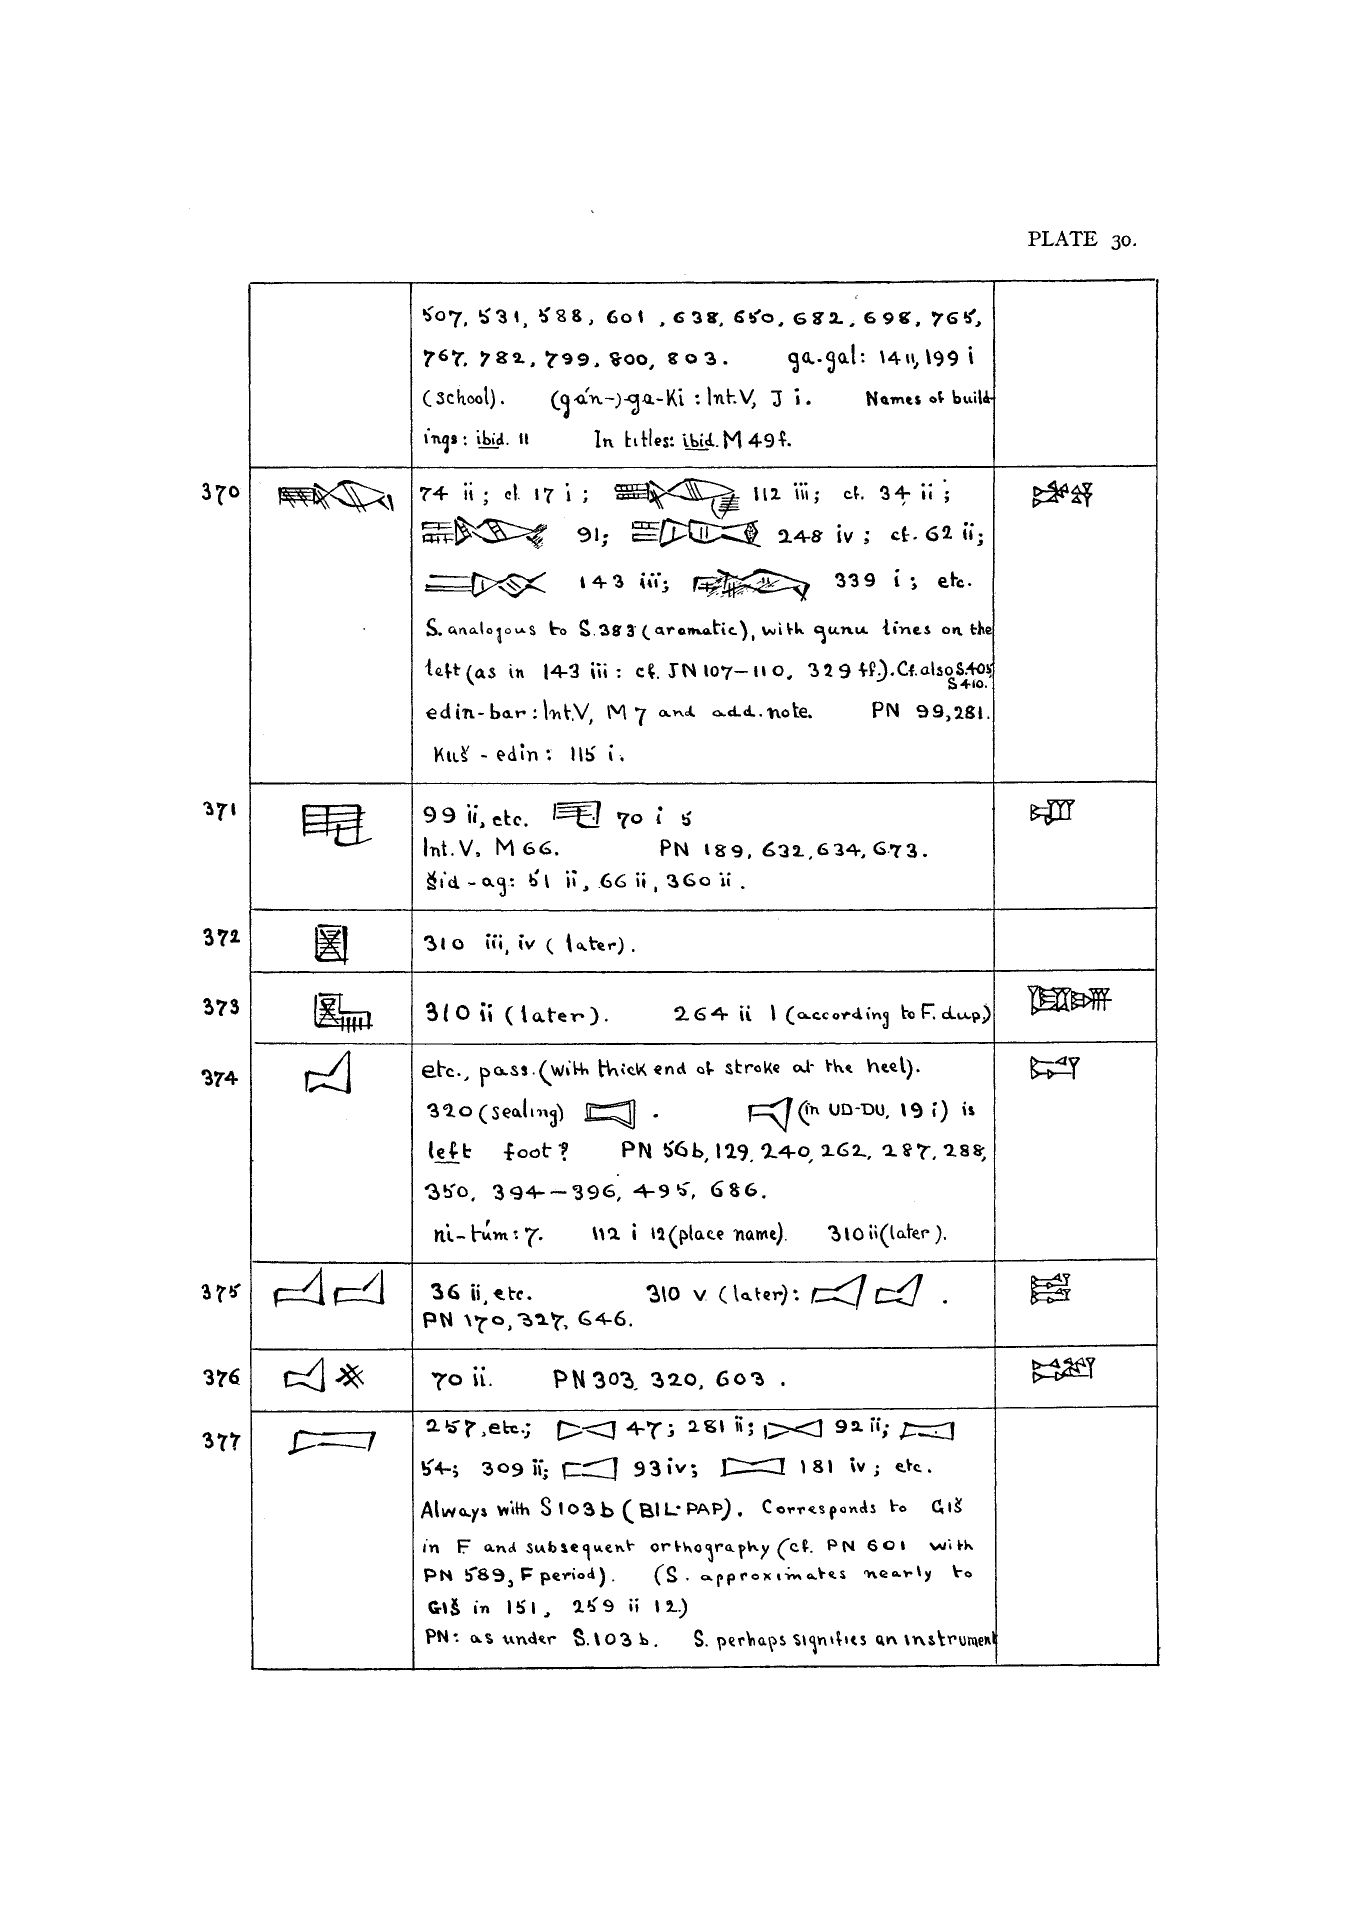 PLATE 30.
507, 531, 588, 601, 638, 650, 682, 698, 765,
767, 782, 799, 800, 803. ga-gal: 14 ii, 199 i
(school). (gán-)-ga-Ki: Int.V, J i. Names of build-
ings: ibid. 11 In titles: ibid. M 49 f.
370 74 ii; cf. 17 i; 112 iii; cf. 34 ii;
91; 248 iv; cf. 62 ii;
143 iii; 339 i; etc.
S. analogous to S.383 (aromatic), with gunu lines on the
left (as in 143 iii: cf. JN 107–110, 329 ff.). Cf. also S.405,
S 410.
edin-bar: Int.V, M 7 and add. note. PN 99, 281.
Kuš-edin: 115 i.
371 99 ii, etc. 70 i 5
Int. V, M 66. PN 189, 632, 634, 673.
šid-ag: 51 ii, 66 ii, 360 ii.
372 310 iii, iv (later).
373 310 ii (later). 264 ii 1 (according to F. dup.)
374 etc., pass. (with thick end of stroke at the heel).
320 (sealing) . (in UD-DU, 19 i) is
left foot? PN 56b, 129, 240, 262, 287, 288,
350, 394–396, 495, 686.
ni-túm: 7. 112 i 12 (place name). 310 ii (later).
375 36 ii, etc. 310 v (later): .
PN 170, 327, 646.
376 70 ii. PN 303, 320, 603.
377 257, etc.; 47; 281 ii; 92 ii;
54; 309 ii; 93 iv; 181 iv; etc.
Always with S 103 b (BIL-PAP). Corresponds to GIŠ
in F. and subsequent orthography (cf. PN 601 with
PN 589, F period). (S. approximates nearly to
GIŠ in 151, 259 ii 12.)
PN: as under S.103 b. S. perhaps signifies an instrument